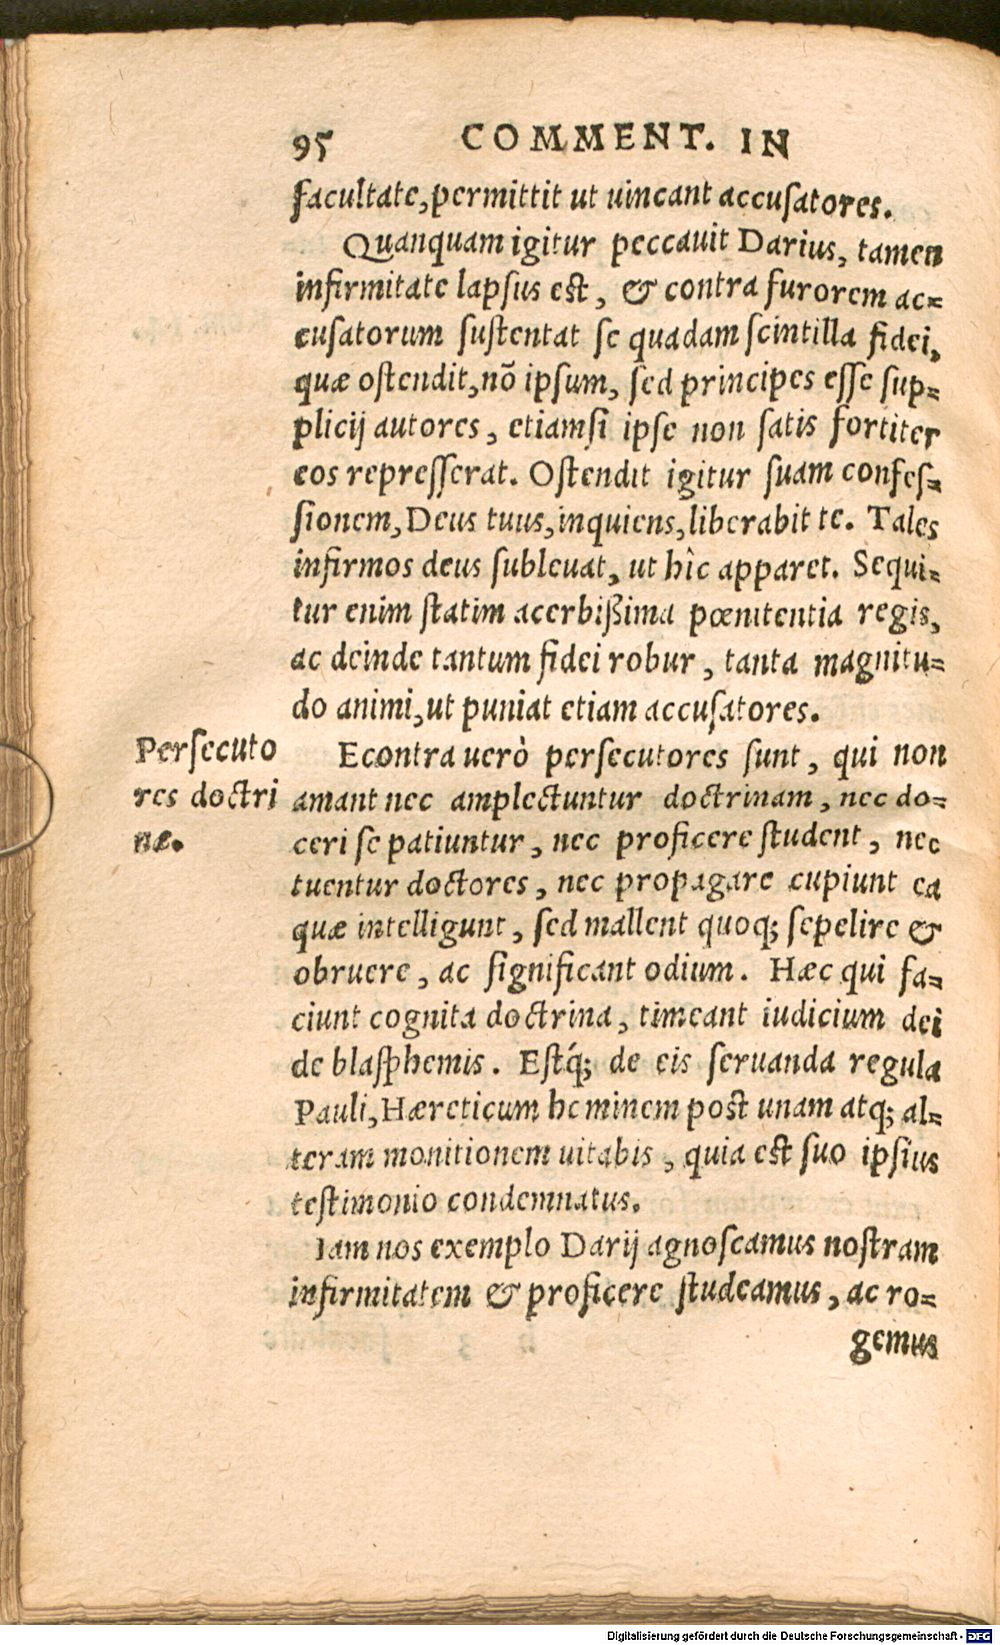 95 COMMENT. IN
facultate, permittit ut uincant accusatores.
Quanquam igitur peccauit Darius, tamen
infirmitate lapsus est, & contra furorem ac=
cusatorum sustentat se quadam scintilla fidei,
quæ ostendit, nõ ipsum, sed principes esse sup=
plicij autores, etiamsi ipse non satis fortiter
eos represserat. Ostendit igitur suam confes=
sionem, Deus tuus, inquiens, liberabit te. Tales
infirmos deus subleuat, ut hîc apparet. Sequi=
tur enim statim acerbißima pœnitentia regis,
ac deinde tantum fidei robur, tanta magnitu=
do animi, ut puniat etiam accusatores.
Persecuto
res doctri
næ.
Econtra uerò persecutores sunt, qui non
amant nec amplectuntur doctrinam, nec do=
ceri se patiuntur, nec proficere student, nec
tuentur doctores, nec propagare cupiunt ea
quæ intelligunt, sed mallent quoq; sepelire &
obruere, ac significant odium. Hæc qui fa=
ciunt cognita doctrina, timeant iudicium dei
de blasphemis. Estq́; de eis seruanda regula
Pauli, Hæreticum hominem post unam atq; al=
teram monitionem uitabis, quia est suo ipsius
testimonio condemnatus.
Iam nos exemplo Darij agnoscamus nostram
infirmitatem & proficere studeamus, ac ro=
gemus
Digitalisierung gefördert durch die Deutsche Forschungsgemeinschaft - DFG